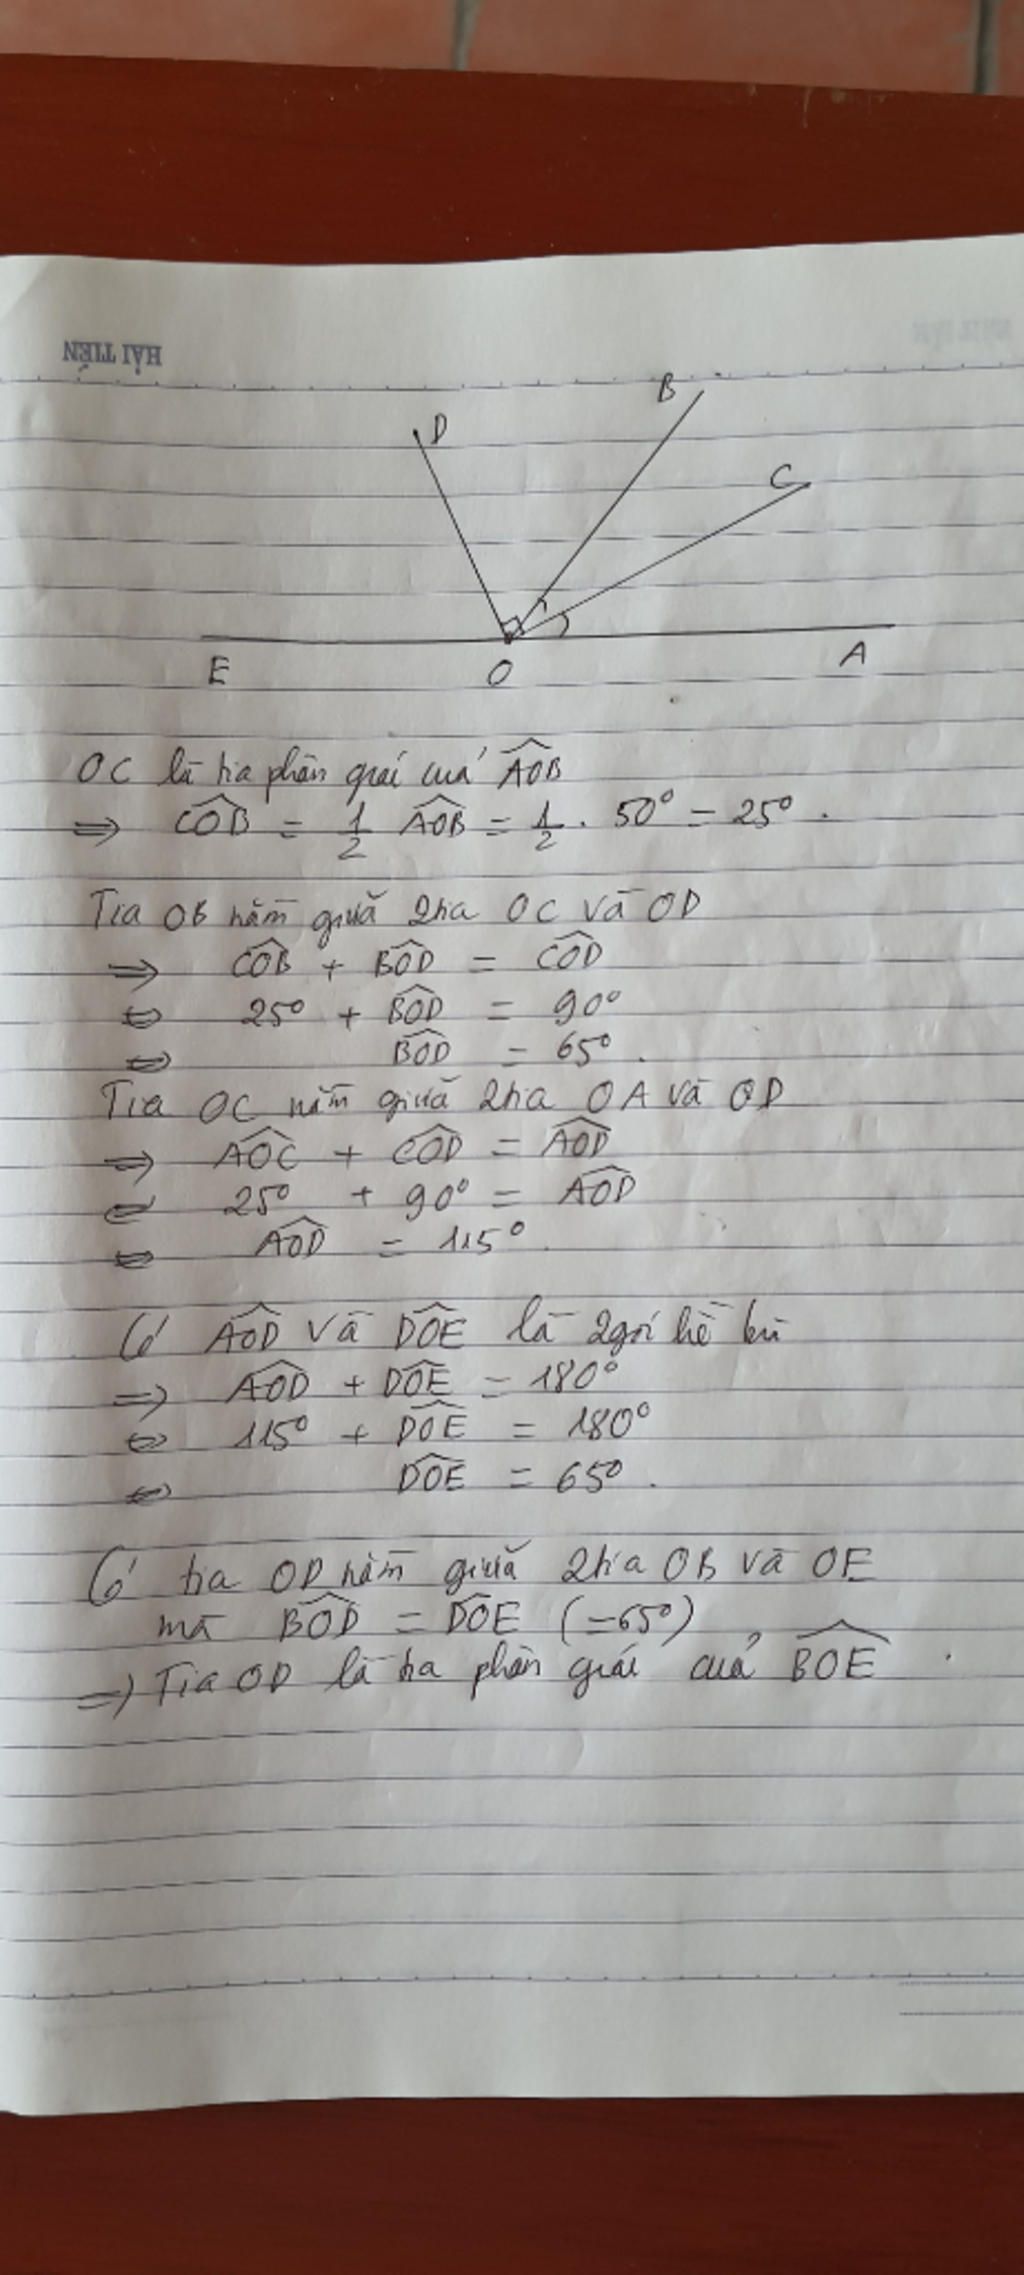 HẢI TIẾN
B
D
C
E
O
A
OC là tia phân giác của AOB
=> COB = 1/2 AOB = 1/2 . 50° = 25° .
Tia OB nằm giữa 2 tia OC và OD
=> COB + BOD = COD
<=> 25° + BOD = 90°
<=> BOD = 65° .
Tia OC nằm giữa 2 tia OA và OD
=> AOC + COD = AOD
<=> 25° + 90° = AOD
<=> AOD = 115° .
Có AOD và DOE là 2 góc kề bù
=> AOD + DOE = 180°
<=> 115° + DOE = 180°
<=> DOE = 65° .
Có tia OD nằm giữa 2 tia OB và OE
mà BOD = DOE (=65°)
=> Tia OD là tia phân giác của BOE .